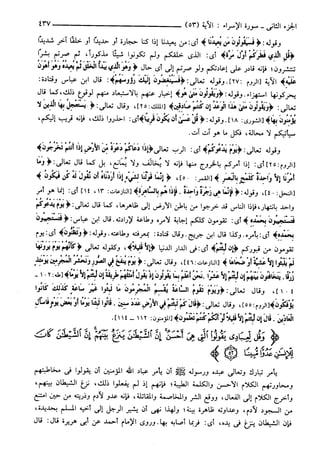 الجزء الثاني - سورة الإسراء : الآية (٥٣) ٤٣٧
وقوله: ﴿فَسَيَقُولُونَ مَن يُعِيدُنَا﴾ أي: من يعيدنا إذا كنا حجارة أو حديداً أو خلقاً آخر شديداً
﴿قُلِ الَّذِي فَطَرَكُمْ أَوَّلَ مَرَّةٍ﴾ أي: الذي خلقكم ولم تكونوا شيئاً مذكوراً، ثم صرتم بشراً
تنتشرون؛ فإنه قادر على إعادتكم ولو صرتم إلى أي حال ﴿وَهُوَ الَّذِي يَبْدَأُ الْخَلْقَ ثُمَّ يُعِيدُهُ وَهُوَ أَهْوَنُ
عَلَيْهِ﴾ الآية [الروم: ٢٧]. وقوله تعالى: ﴿فَسَيُنْغِضُونَ إِلَيْكَ رُءُوسَهُمْ﴾: قال ابن عباس وقتادة:
يحركونها استهزاء. وقوله: ﴿وَيَقُولُونَ مَتَى هُوَ﴾ إخبار عنهم بالاستبعاد منهم لوقوع ذلك، كما قال
تعالى: ﴿وَيَقُولُونَ مَتَى هَذَا الْوَعْدُ إِن كُنتُمْ صَادِقِينَ﴾ [الملك: ٢٥]، وقال تعالى: ﴿يَسْتَعْجِلُ بِهَا الَّذِينَ لَا
يُؤْمِنُونَ بِهَا﴾ [الشورى: ١٨]. وقوله: ﴿قُلْ عَسَى أَن يَكُونَ قَرِيبًا﴾ أي: احذروا ذلك، فإنه قريب إليكم،
سيأتيكم لا محالة، فكل ما هو آت آت.
وقوله تعالى: ﴿يَوْمَ يَدْعُوكُمْ﴾ أي: الرب تعالى ﴿إِذَا دَعَاكُمْ دَعْوَةً مِّنَ الْأَرْضِ إِذَا أَنتُمْ تَخْرُجُونَ﴾
[الروم: ٢٥] أي: إذا أمركم بالخروج منها فإنه لا يُخالَف ولا يُمانَع، بل كما قال تعالى: ﴿وَمَا
أَمْرُنَا إِلَّا وَاحِدَةٌ كَلَمْحٍ بِالْبَصَرِ﴾ [القمر: ٥٠]، ﴿إِنَّمَا قَوْلُنَا لِشَيْءٍ إِذَا أَرَدْنَاهُ أَن نَّقُولَ لَهُ كُن فَيَكُونُ﴾
[النحل: ٤٠]. وقوله: ﴿فَإِنَّمَا هِيَ زَجْرَةٌ وَاحِدَةٌ. فَإِذَا هُم بِالسَّاهِرَةِ﴾ [النازعات: ١٣، ١٤] أي: إنما هو أمر
واحد بانتهار، فإذا الناس قد خرجوا من باطن الأرض إلى ظاهرها، كما قال تعالى: ﴿يَوْمَ يَدْعُوكُمْ
فَتَسْتَجِيبُونَ بِحَمْدِهِ﴾ أي: تقومون كلكم إجابة لأمره وطاعة لإرادته. قال ابن عباس: ﴿فَتَسْتَجِيبُونَ
بِحَمْدِهِ﴾ أي: بأمره. وكذا قال ابن جريج. وقال قتادة: بمعرفته وطاعته. وقوله: ﴿وَتَظُنُّونَ﴾ أي: يوم
تقومون من قبوركم ﴿إِن لَّبِثْتُمْ﴾ أي: في الدار الدنيا ﴿إِلَّا قَلِيلًا﴾، وكقوله تعالى ﴿كَأَنَّهُمْ يَوْمَ يَرَوْنَهَا
لَمْ يَلْبَثُوا إِلَّا عَشِيَّةً أَوْ ضُحَاهَا﴾ [النازعات: ٤٦]، وقال تعالى: ﴿يَوْمَ يُنفَخُ فِي الصُّورِ وَنَحْشُرُ الْمُجْرِمِينَ يَوْمَئِذٍ
زُرْقًا. يَتَخَافَتُونَ بَيْنَهُمْ إِن لَّبِثْتُمْ إِلَّا عَشْرًا. نَّحْنُ أَعْلَمُ بِمَا يَقُولُونَ إِذْ يَقُولُ أَمْثَلُهُمْ طَرِيقَةً إِن لَّبِثْتُمْ إِلَّا يَوْمًا﴾ [طه: ١٠٢ -
١٠٤]، وقال تعالى: ﴿وَيَوْمَ تَقُومُ السَّاعَةُ يُقْسِمُ الْمُجْرِمُونَ مَا لَبِثُوا غَيْرَ سَاعَةٍ كَذَلِكَ كَانُوا
يُؤْفَكُونَ﴾ [الروم: ٥٥]، وقال تعالى: ﴿قَالَ كَمْ لَبِثْتُمْ فِي الْأَرْضِ عَدَدَ سِنِينَ. قَالُوا لَبِثْنَا يَوْمًا أَوْ بَعْضَ يَوْمٍ فَاسْأَلِ
الْعَادِّينَ. قَالَ إِن لَّبِثْتُمْ إِلَّا قَلِيلًا لَّوْ أَنَّكُمْ كُنتُمْ تَعْلَمُونَ﴾ [المؤمنون: ١١٢ - ١١٤].
﴿وَقُل لِّعِبَادِي يَقُولُوا الَّتِي هِيَ أَحْسَنُ إِنَّ الشَّيْطَانَ يَنزَغُ بَيْنَهُمْ إِنَّ الشَّيْطَانَ كَانَ لِلْإِنسَانِ
عَدُوًّا مُّبِينًا ﴿٥٣﴾﴾
يأمر تبارك وتعالى عبده ورسوله ﷺ أن يأمر عباد الله المؤمنين أن يقولوا في مخاطباتهم
ومحاوراتهم الكلام الأحسن والكلمة الطيبة؛ فإنهم إذ لم يفعلوا ذلك، نزغ الشيطان بينهم،
وأخرج الكلام إلى الفعال، ووقع الشر والمخاصمة والمقاتلة، فإنه عدو لآدم وذريته من حين امتنع
من السجود لآدم، وعداوته ظاهرة بينة؛ ولهذا نهى أن يشير الرجل إلى أخيه المسلم بحديدة،
فإن الشيطان ينزغ في يده، أي: فربما أصابه بها. وروى الإمام أحمد عن أبي هريرة قال: قال